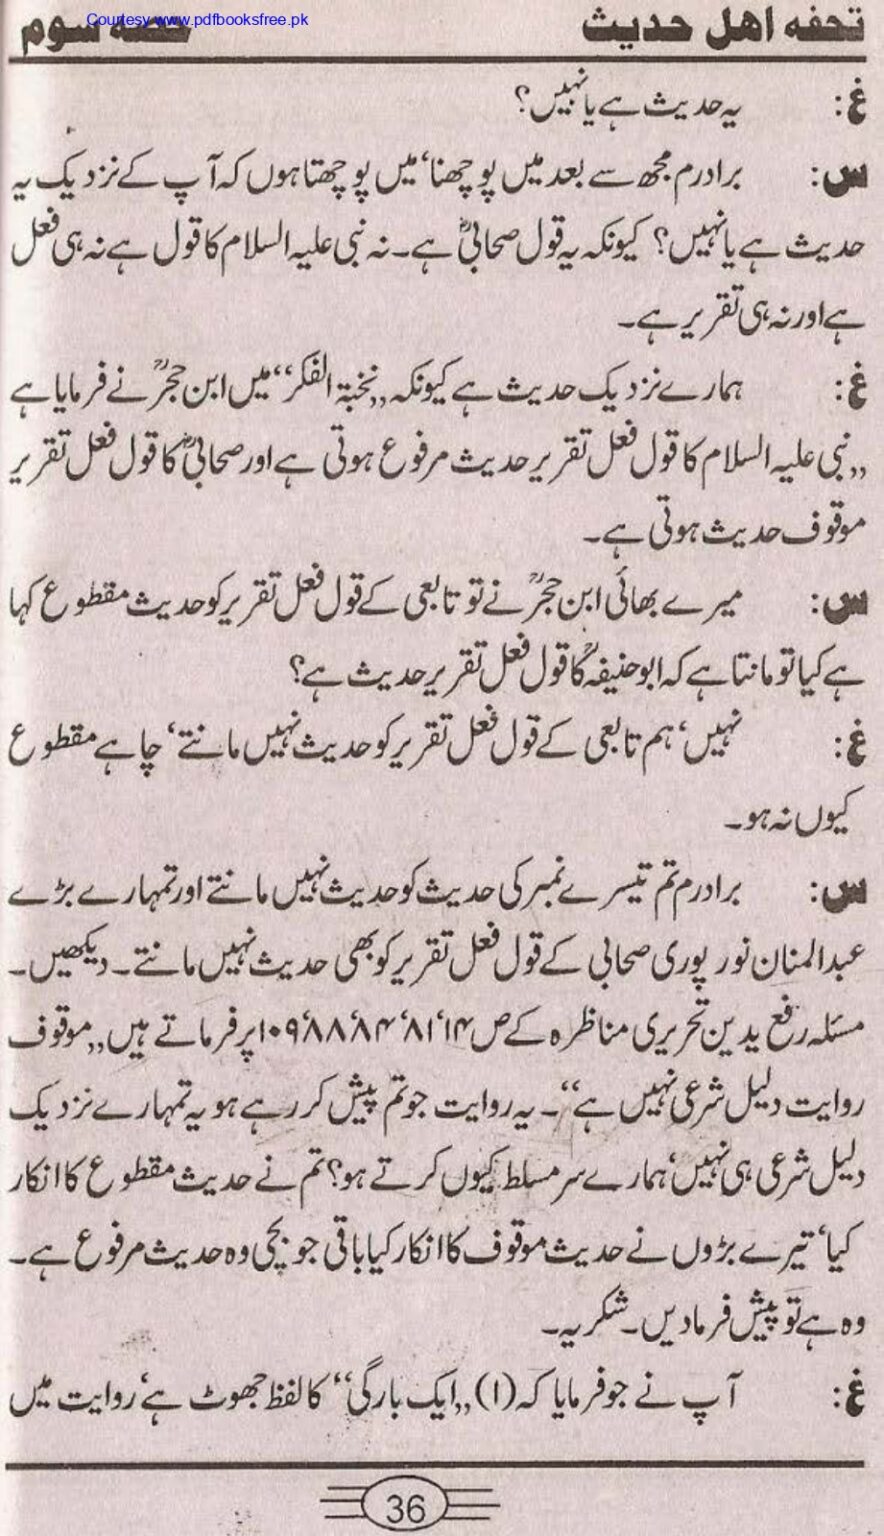 Courtesy www.pdfbooksfree.pk
تحفہ اھل حدیث حصہ سوم
غ: یہ حدیث ہے یا نہیں؟
س: برادرم مجھ سے بعد میں پوچھنا، میں پوچھتا ہوں کہ آپ کے نزدیک یہ
حدیث ہے یا نہیں؟ کیونکہ یہ قول صحابیؓ ہے۔ نہ نبی علیہ السلام کا قول ہے نہ ہی فعل
ہے اور نہ ہی تقریر ہے۔
غ: ہمارے نزدیک حدیث ہے کیونکہ ,,نخبۃ الفکر“ میں ابن حجرؒ نے فرمایا ہے
,,نبی علیہ السلام کا قول فعل تقریر حدیث مرفوع ہوتی ہے اور صحابیؓ کا قول فعل تقریر
موقوف حدیث ہوتی ہے۔
س: میرے بھائی ابن حجرؒ نے تو تابعی کے قول فعل تقریر کو حدیث مقطوع کہا
ہے کیا تو مانتا ہے کہ ابو حنیفہؒ کا قول فعل تقریر حدیث ہے؟
غ: نہیں، ہم تابعی کے قول فعل تقریر کو حدیث نہیں مانتے، چاہے مقطوع
کیوں نہ ہو۔
س: برادرم تم تیسرے نمبر کی حدیث کو حدیث نہیں مانتے اور تمہارے بڑے
عبدالمنان نور پوری صحابی کے قول فعل تقریر کو بھی حدیث نہیں مانتے۔ دیکھیں۔
مسئلہ رفع یدین تحریری مناظرہ کے ص ۱۴،۸۱،۸۴،۸۸،۱۰۹ پر فرماتے ہیں ,,موقوف
روایت دلیل شرعی نہیں ہے“۔ یہ روایت جو تم پیش کر رہے ہو یہ تمہارے نزدیک
دلیل شرعی ہی نہیں، ہمارے سر مسلط کیوں کرتے ہو؟ تم نے حدیث مقطوع کا انکار
کیا، تیرے بڑوں نے حدیث موقوف کا انکار کیا باقی جو بچی وہ حدیث مرفوع ہے۔
وہ ہے تو پیش فرمادیں۔ شکریہ۔
غ: آپ نے جو فرمایا کہ (۱) ,,ایک بارگی“ کا لفظ جھوٹ ہے، روایت میں
36